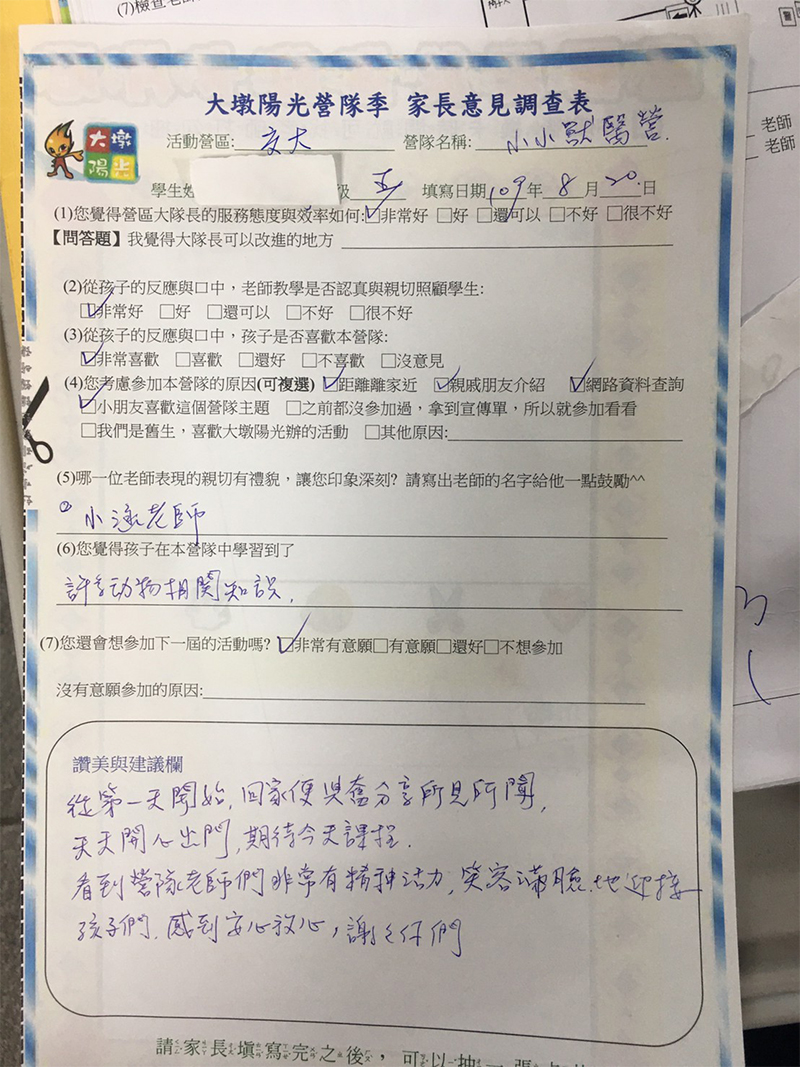 (7)檢查老師
老師
老師
大墩陽光營隊季 家長意見調查表
大墩
陽光
活動營區: 交大 營隊名稱: 小小獸醫營.
學生姓 級 五 填寫日期 109 年 8 月 20. 日
(1)您覺得營區大隊長的服務態度與效率如何:☑非常好 □好 □還可以 □不好 □很不好
【問答題】我覺得大隊長可以改進的地方
(2)從孩子的反應與口中，老師教學是否認真與親切照顧學生:
☑非常好 □好 □還可以 □不好 □很不好
(3)從孩子的反應與口中，孩子是否喜歡本營隊:
☑非常喜歡 □喜歡 □還好 □不喜歡 □沒意見
(4)您考慮參加本營隊的原因(可複選) ☑距離離家近 ☑親戚朋友介紹 ☑網路資料查詢
☑小朋友喜歡這個營隊主題 □之前都沒參加過，拿到宣傳單，所以就參加看看
□我們是舊生，喜歡大墩陽光辦的活動 □其他原因:
(5)哪一位老師表現的親切有禮貌，讓您印象深刻? 請寫出老師的名字給他一點鼓勵^^
小泳老師
(6)您覺得孩子在本營隊中學習到了
許多动物相関知識.
(7)您還會想參加下一屆的活動嗎? ☑非常有意願□有意願□還好□不想參加
沒有意願參加的原因:
讚美與建議欄
從第一天開始, 回家便興奮分享所見所聞,
天天開心出門, 期待今天課程.
看到營隊老師們非常有精神活力, 笑容滿臉地迎接
孩子們. 感到安心放心, 謝謝你們
請家長填寫完之後，可以抽一張